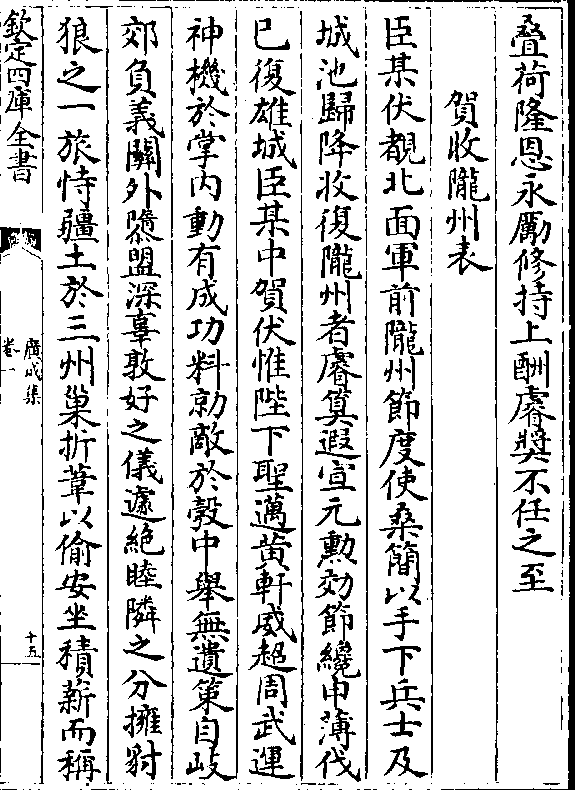 疊荷隆恩永勵修持上酬睿奬不任之至
賀收隴州表
臣某伏覩北面軍前隴州節度使桑簡以手下兵士及
城池歸降收復隴州者睿算遐宣元勲効節纔申薄伐
已復雄城臣某中賀伏惟陛下聖邁黄軒威超周武運
神機於掌内動有成功料勍敵於彀中舉無遺策自岐
郊負義關外隳盟深辜敦好之儀遽絶睦隣之分擁豺
狼之一旅恃疆土於三州巢折葦以偷安坐積薪而稱
欽定四庫全書
廣成集
卷一
十五